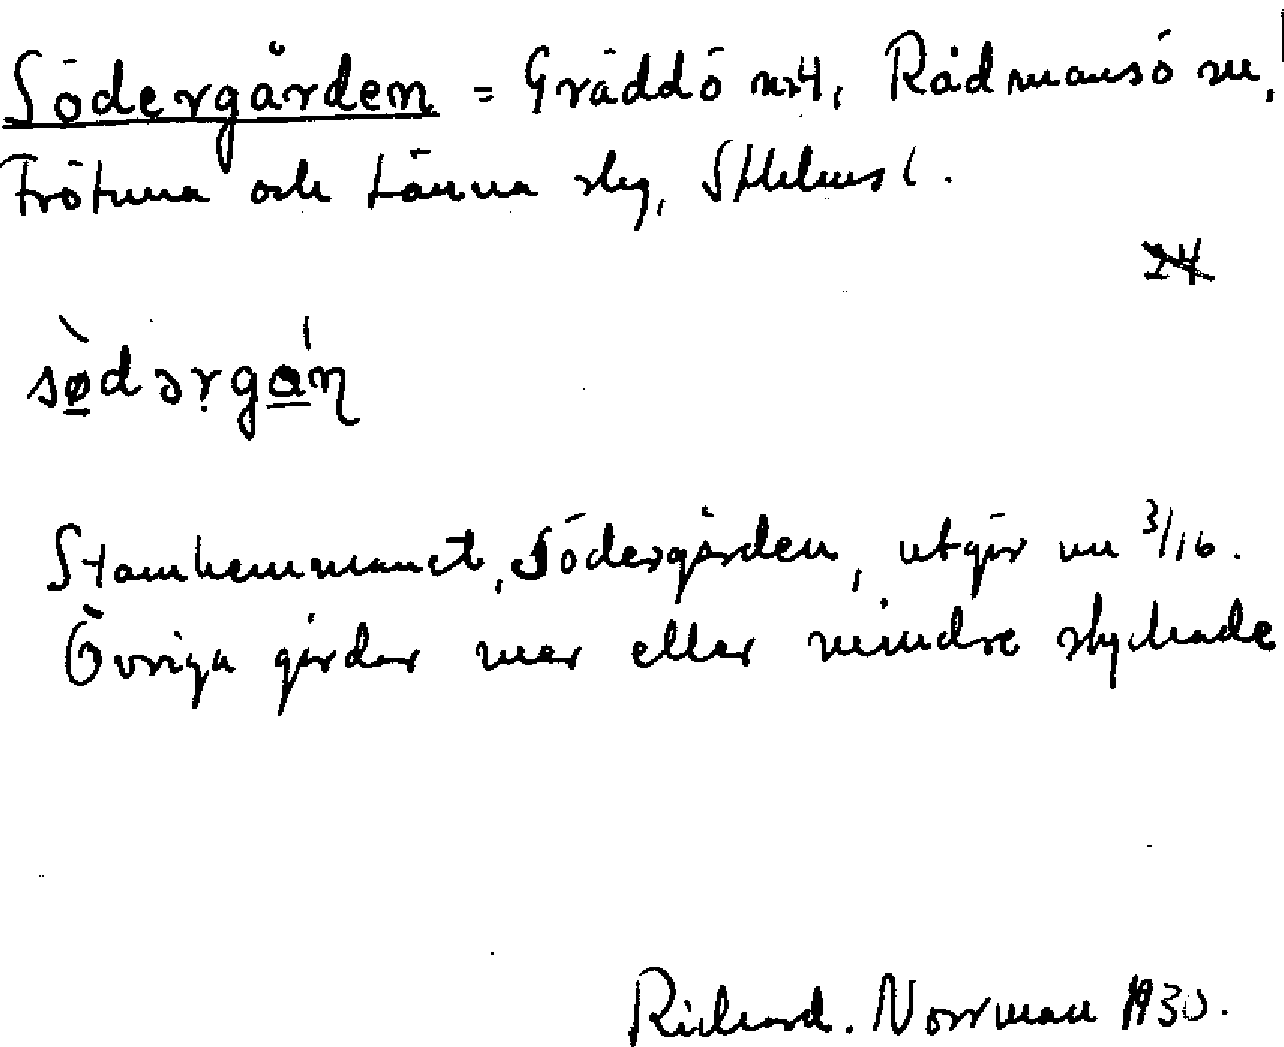 Södergården = Gräddö nr 4, Rådmansö sn,
Frötuna och Länna slg, Sthlms l.
24
södərgá̱ṇ
Stamhemmanet, Södergården, utgör nu 3/16.
Övriga gårdar mer eller mindre styckade
Richard. Norrman 1930.